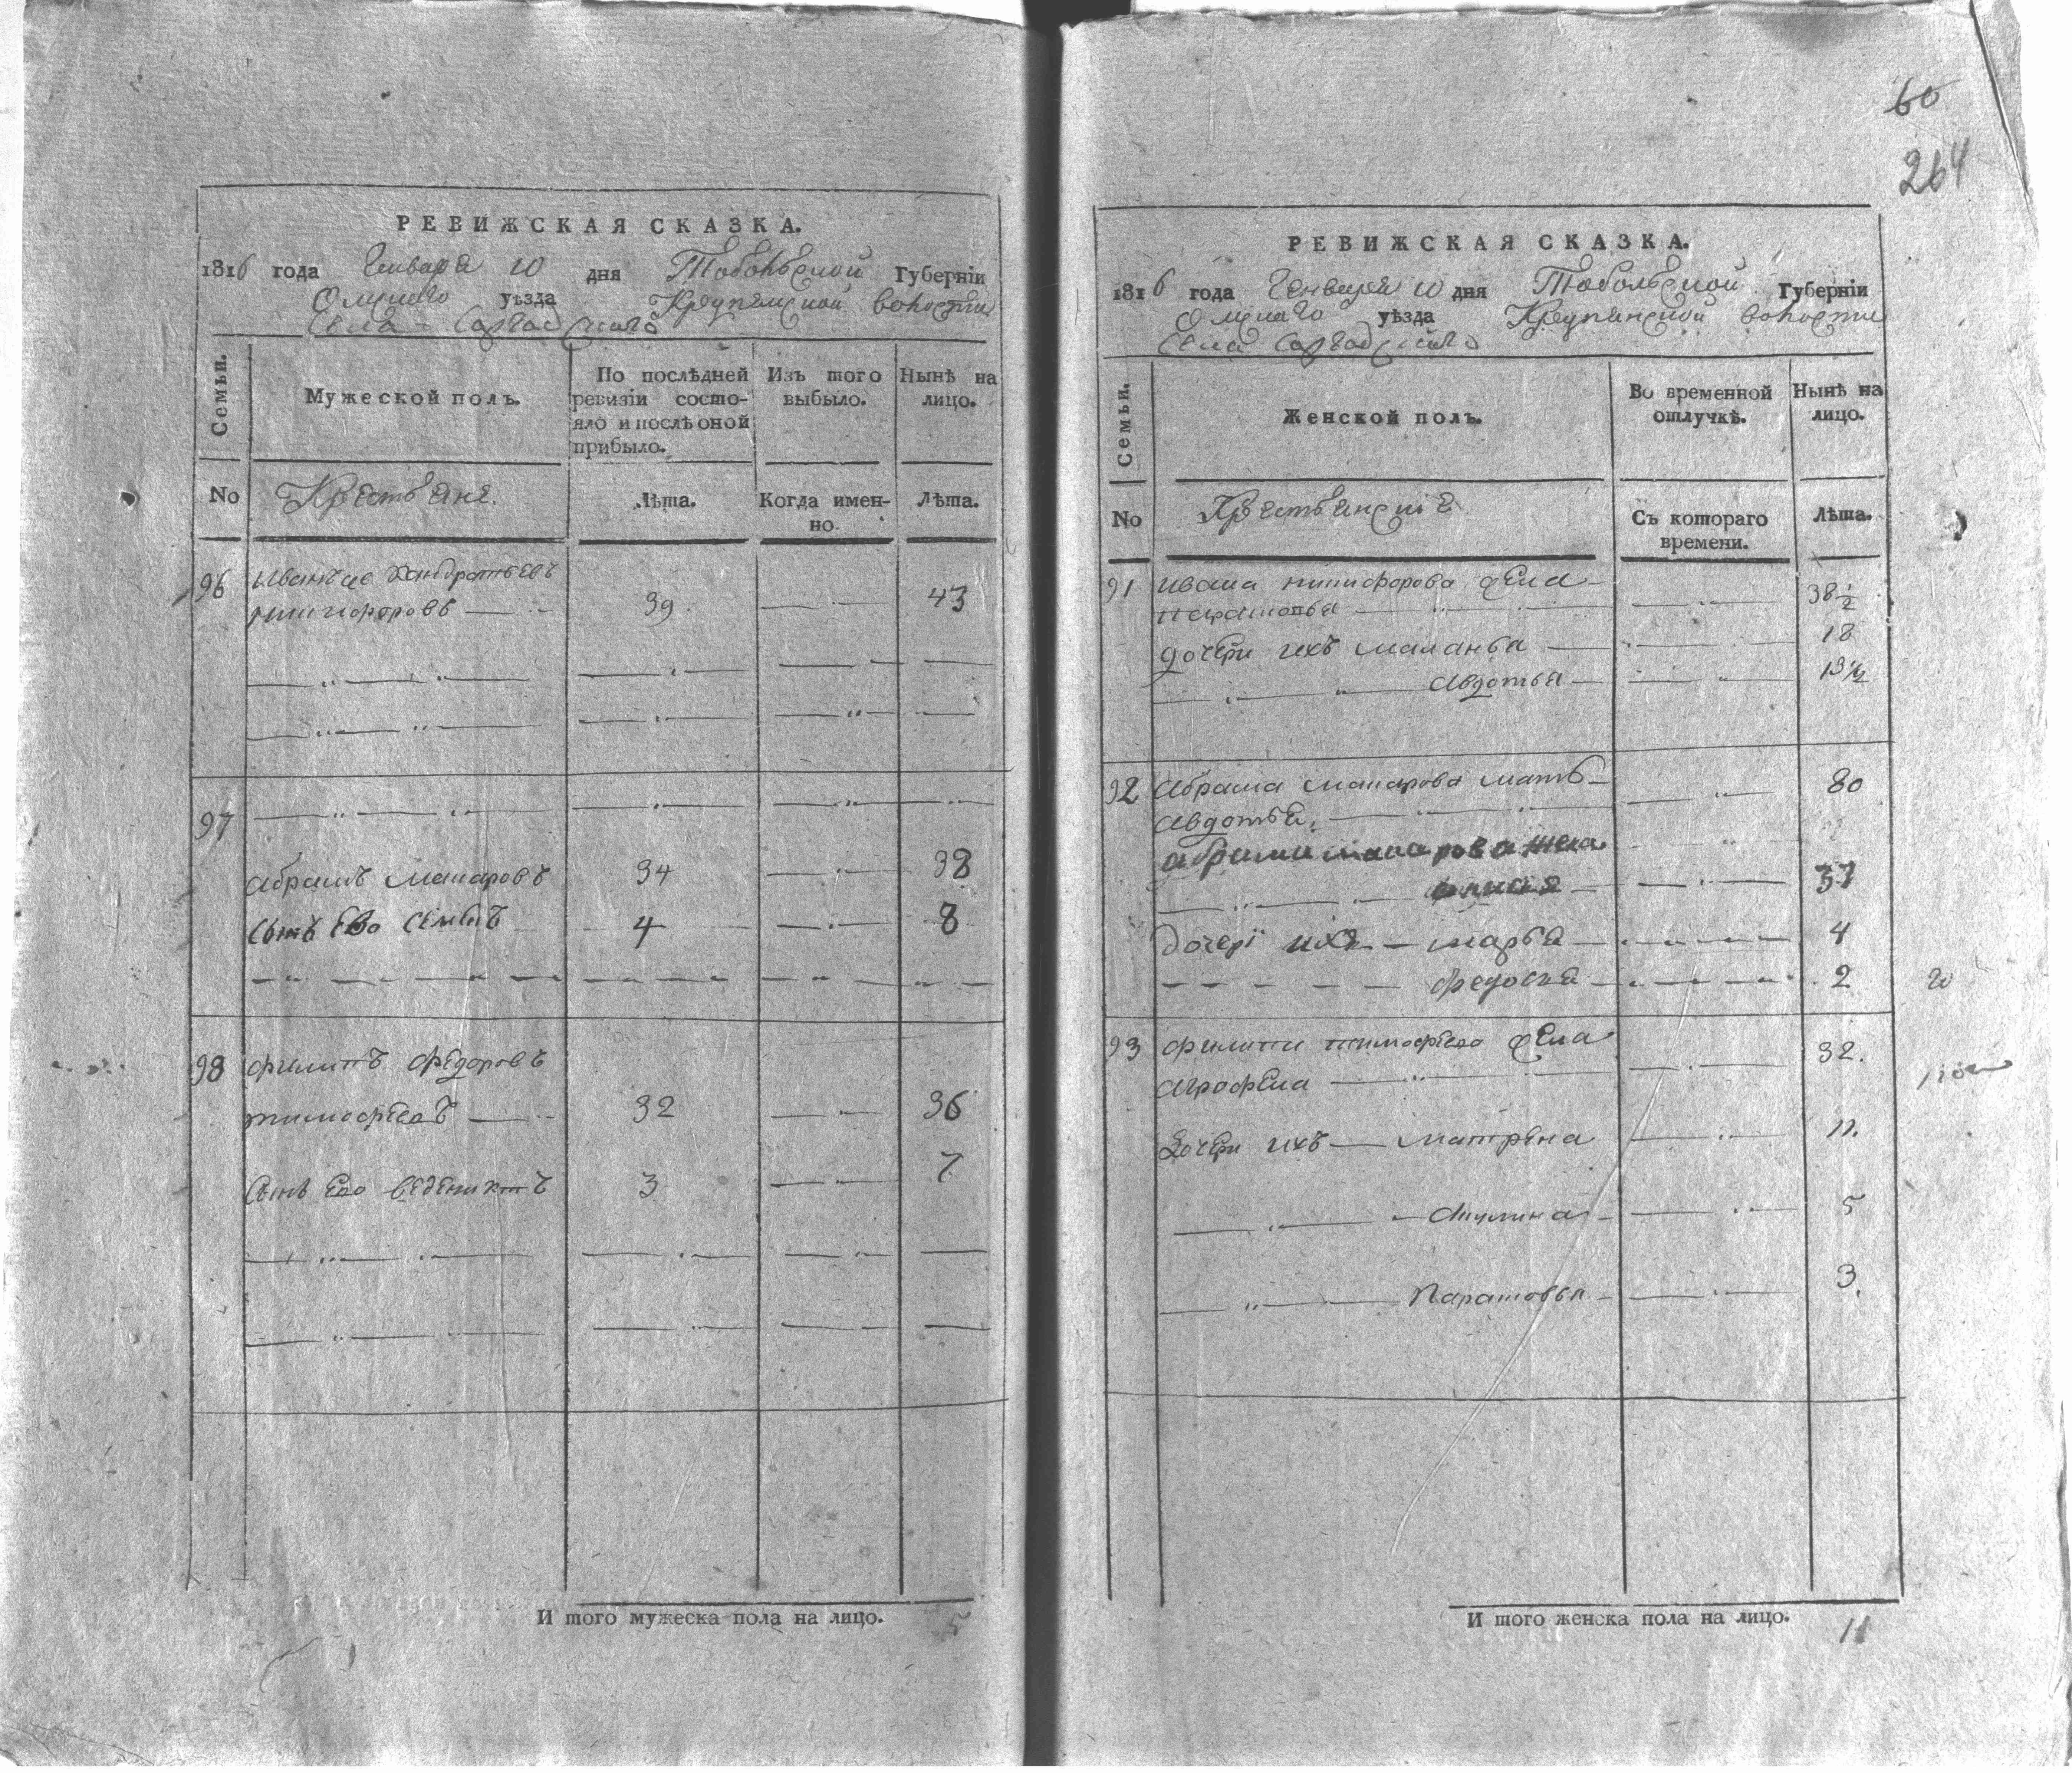 РЕВИЖСКАЯ СКАЗКА.
1816 года Генваря 10 дня Тобольской Губерніи
Омскаго уѣзда Крупянской волости
Села
Семьи.
Мужеской полъ.
По послѣдней ревизіи состояло и послѣ оной прибыло.
Изъ того выбыло.
Нынѣ на лицо.
No
Крестьяне.
Лѣта.
Когда именно.
Лѣта.
96 Иванъ Кондратьевъ
никифоровъ 39 43
97
абрамъ макаровъ 34 38
Сынъ Ево Семенъ 4 8
98 филипъ федоровъ
тимофеевъ 32 36
Сынъ Ево Веденихтъ 3 7
И того мужеска пола на лицо. 5
60
264
РЕВИЖСКАЯ СКАЗКА.
1816 года Генваря 10 дня Тобольской Губерніи
Омскаго уѣзда Крупянской волости
Села
Семьи.
Женской полъ.
Во временной отлучкѣ.
Нынѣ на лицо.
No
Крестьянские
Съ котораго времени.
Лѣта.
91 Ивана никифорова жена
38 1/2
дочери ихъ маланья 18
Авдотья 13 1/2
92 Абрама макарова мать
Авдотья 80
абрама макарова жена
37
дочери ихъ марья 4
федосья 2
93 филипа тимофеева жена
Агрофена 32.
Дочери ихъ матрена 11.
Акулина 5
Парасковья 3.
И того женска пола на лицо. 11